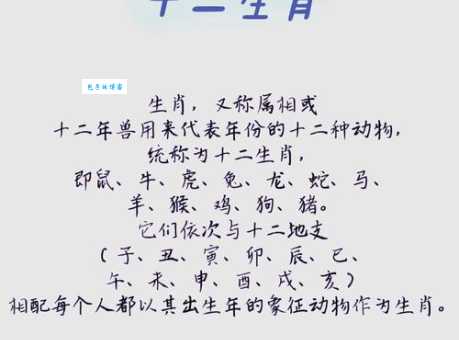 十二生肖
生肖，又称属相或
十二年兽用来代表年份的十二种动物，
统称为十二生肖，
即鼠、牛、虎、兔、龙、蛇、马、
羊、猴、鸡、狗、猪。
它们依次与十二地支
（子、丑、寅、卯、辰、已、
午、未、申、酉、戌、亥）
相配每个人都以其出生年的象征动物作为生肖。